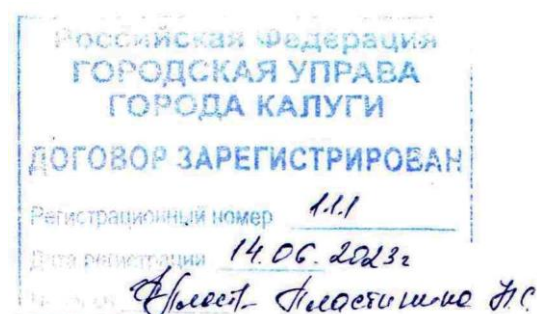 Российская Федерация
ГОРОДСКАЯ УПРАВА
ГОРОДА КАЛУГИ
ДОГОВОР ЗАРЕГИСТРИРОВАН
Регистрационный номер 1.1.1
Дата регистрации 14.06.2023г